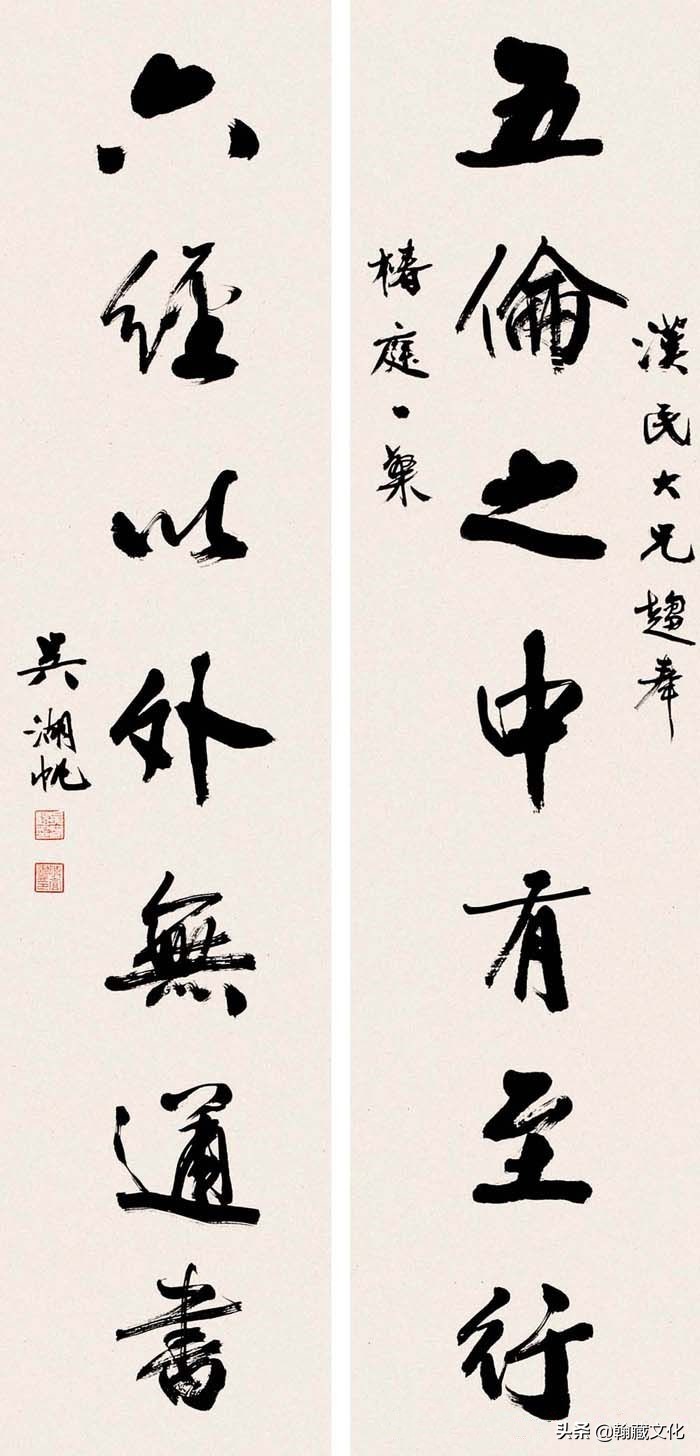 漢民大兄趨奉
五倫之中有至行
椿庭一粲
六經以外無通書
吳湖帆
头条 @翰藏文化